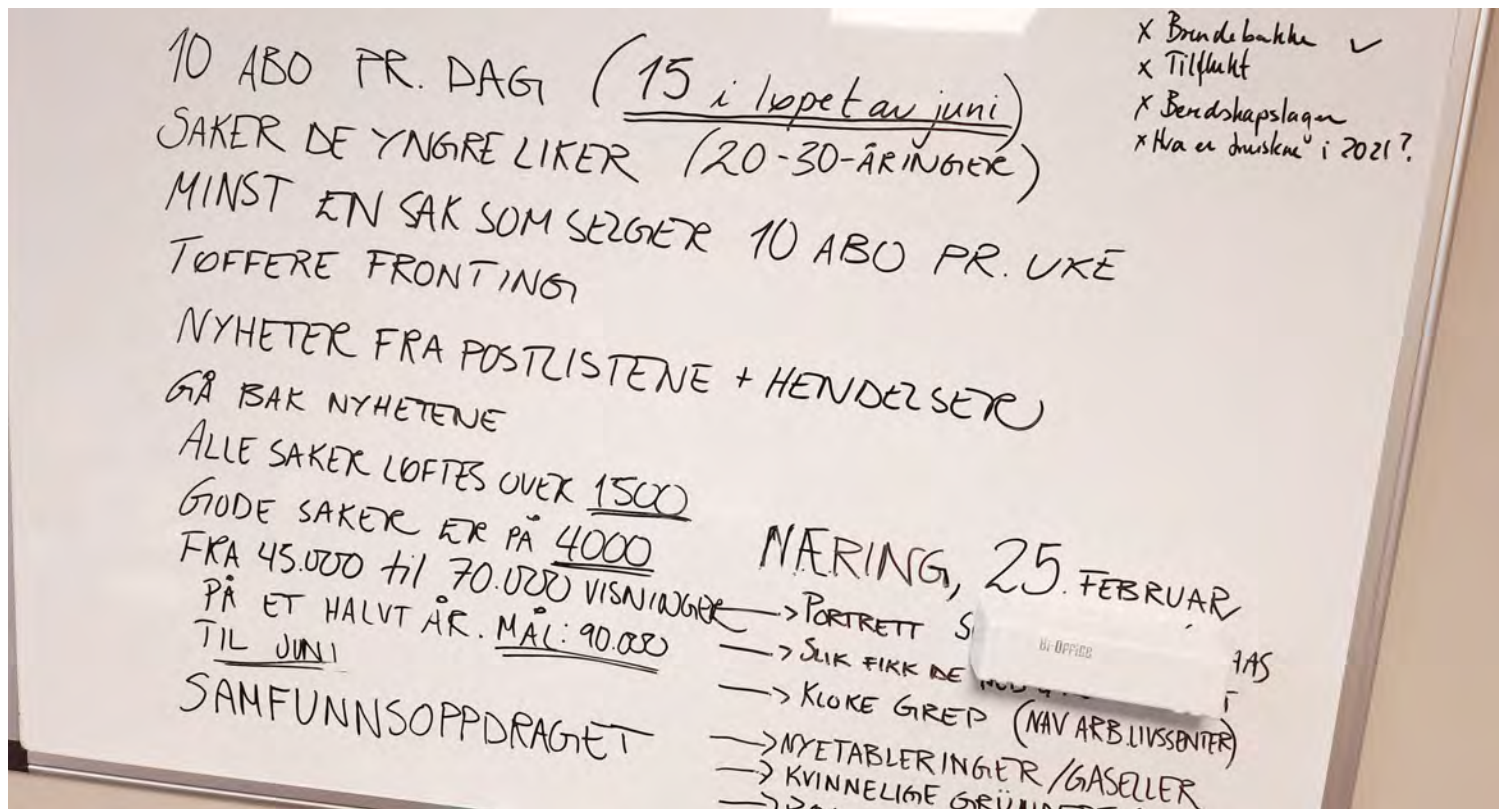 10 ABO PR. DAG (15 i løpet av juni)
SAKER DE YNGRE LIKER (20-30-ÅRINGER)
MINST EN SAK SOM SELGER 10 ABO PR. UKE
TØFFERE FRONTING
NYHETER FRA POSTLISTENE + HENDELSER
GÅ BAK NYHETENE
ALLE SAKER LØFTES OVER 1500
GODE SAKER ER PÅ 4000
FRA 45.000 til 70.000 VISNINGER
PÅ ET HALVT ÅR. MÅL: 90.000
TIL JUNI
SAMFUNNSOPPDRAGET
x Brendebakke ✓
x Tilflukt
x Beredskapslagen
x Hva er i 2021?
NÆRING, 25. FEBRUAR
→ PORTRETT
→ SLIK FIKK DE
→ KLOKE GREP (NAV ARB.LIVSSENTER)
→ NYETABLERINGER / GASELLER
→ KVINNELIGE
Bi-OFFICE